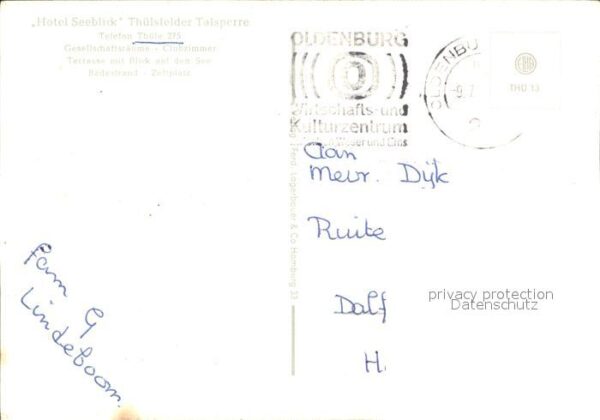 „Hotel Seeblick" Thülsfelder Talsperre
Telefon Thüle 275
Gesellschaftsräume - Clubzimmer
Terrasse mit Blick auf den See
Badestrand - Zeltplatz
OLDENBURG
Wirtschafts- und
Kulturzentrum
Weser und Ems
OLDENBU
-9.7
EKB
THO 13
Ferd. Lagerbauer & Co Hamburg 33
Aan
Mevr. Dijk
Ruite
Dalf
H.
privacy protection
Datenschutz
Fam G
Lindeboom.